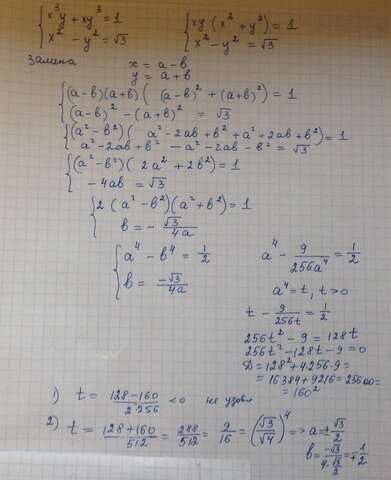 { x³y + xy³ = 1
x² - y² = √3
{ xy (x² + y²) = 1
x² - y² = √3
Замена x = a - в
y = a + в
{ (a-в)(a+в)( (a-в)² + (a+в)²) = 1
(a-в)² - (a+в)² = √3
{ (a²-в²)( a² - 2aв + в² + a² + 2aв + в²) = 1
a² - 2aв + в² - a² - 2aв - в² = √3
{ (a²-в²)( 2a² + 2в²) = 1
- 4aв = √3
{ 2 (a² - в²)(a² + в²) = 1
в = - √3/4a
{ a⁴ - в⁴ = 1/2
в = -√3/4a
a⁴ - 9/256a⁴ = 1/2
a⁴ = t, t > 0
t - 9/256t = 1/2
256t² - 9 = 128t
256t² - 128t - 9 = 0
D = 128² + 4·256·9 =
= 16384 + 9216 = 25600 =
= 160²
1) t = 128-160/2·256 < 0 не удовл
2) t = 128+160/512 = 288/512 = 9/16 = (√3/√4)⁴ => a = ± √3/2
в = -√3/4·√3/2 = ∓ 1/2